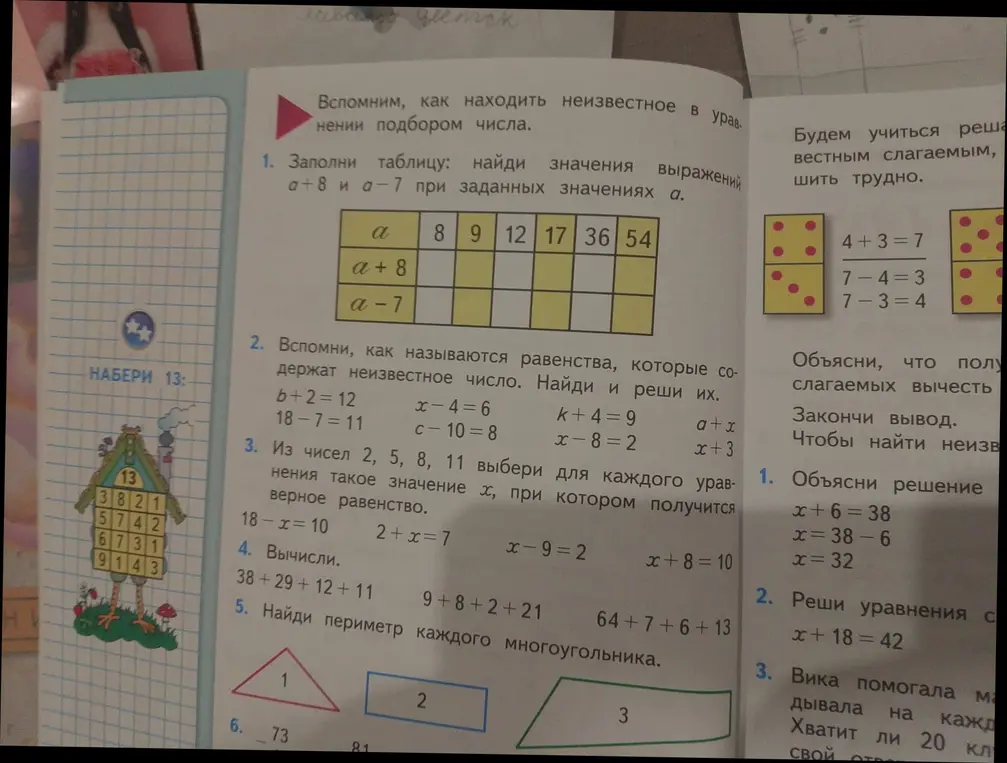 Вспомним, как находить неизвестное в урав-
нении подбором числа.
1. Заполни таблицу: найди значения выражений
a + 8 и a − 7 при заданных значениях a.
a 8 9 12 17 36 54
a + 8
a − 7
2. Вспомни, как называются равенства, которые со-
держат неизвестное число. Найди и реши их.
b + 2 = 12 x − 4 = 6 k + 4 = 9 a + x
18 − 7 = 11 c − 10 = 8 x − 8 = 2 x + 3
3. Из чисел 2, 5, 8, 11 выбери для каждого урав-
нения такое значение x, при котором получится
верное равенство.
18 − x = 10 2 + x = 7 x − 9 = 2 x + 8 = 10
4. Вычисли.
38 + 29 + 12 + 11 9 + 8 + 2 + 21 64 + 7 + 6 + 13
5. Найди периметр каждого многоугольника.
1 2 3
6. _73 81
НАБЕРИ 13:
13
3 8 2 1
5 7 4 2
6 7 3 1
9 1 4 3
Будем учиться реша
вестным слагаемым,
шить трудно.
4 + 3 = 7
7 − 4 = 3
7 − 3 = 4
Объясни, что полу
слагаемых вычесть
Закончи вывод.
Чтобы найти неизв
1. Объясни решение
x + 6 = 38
x = 38 − 6
x = 32
2. Реши уравнения с
x + 18 = 42
3. Вика помогала ма
дывала на кажд
Хватит ли 20 кл
свой отве